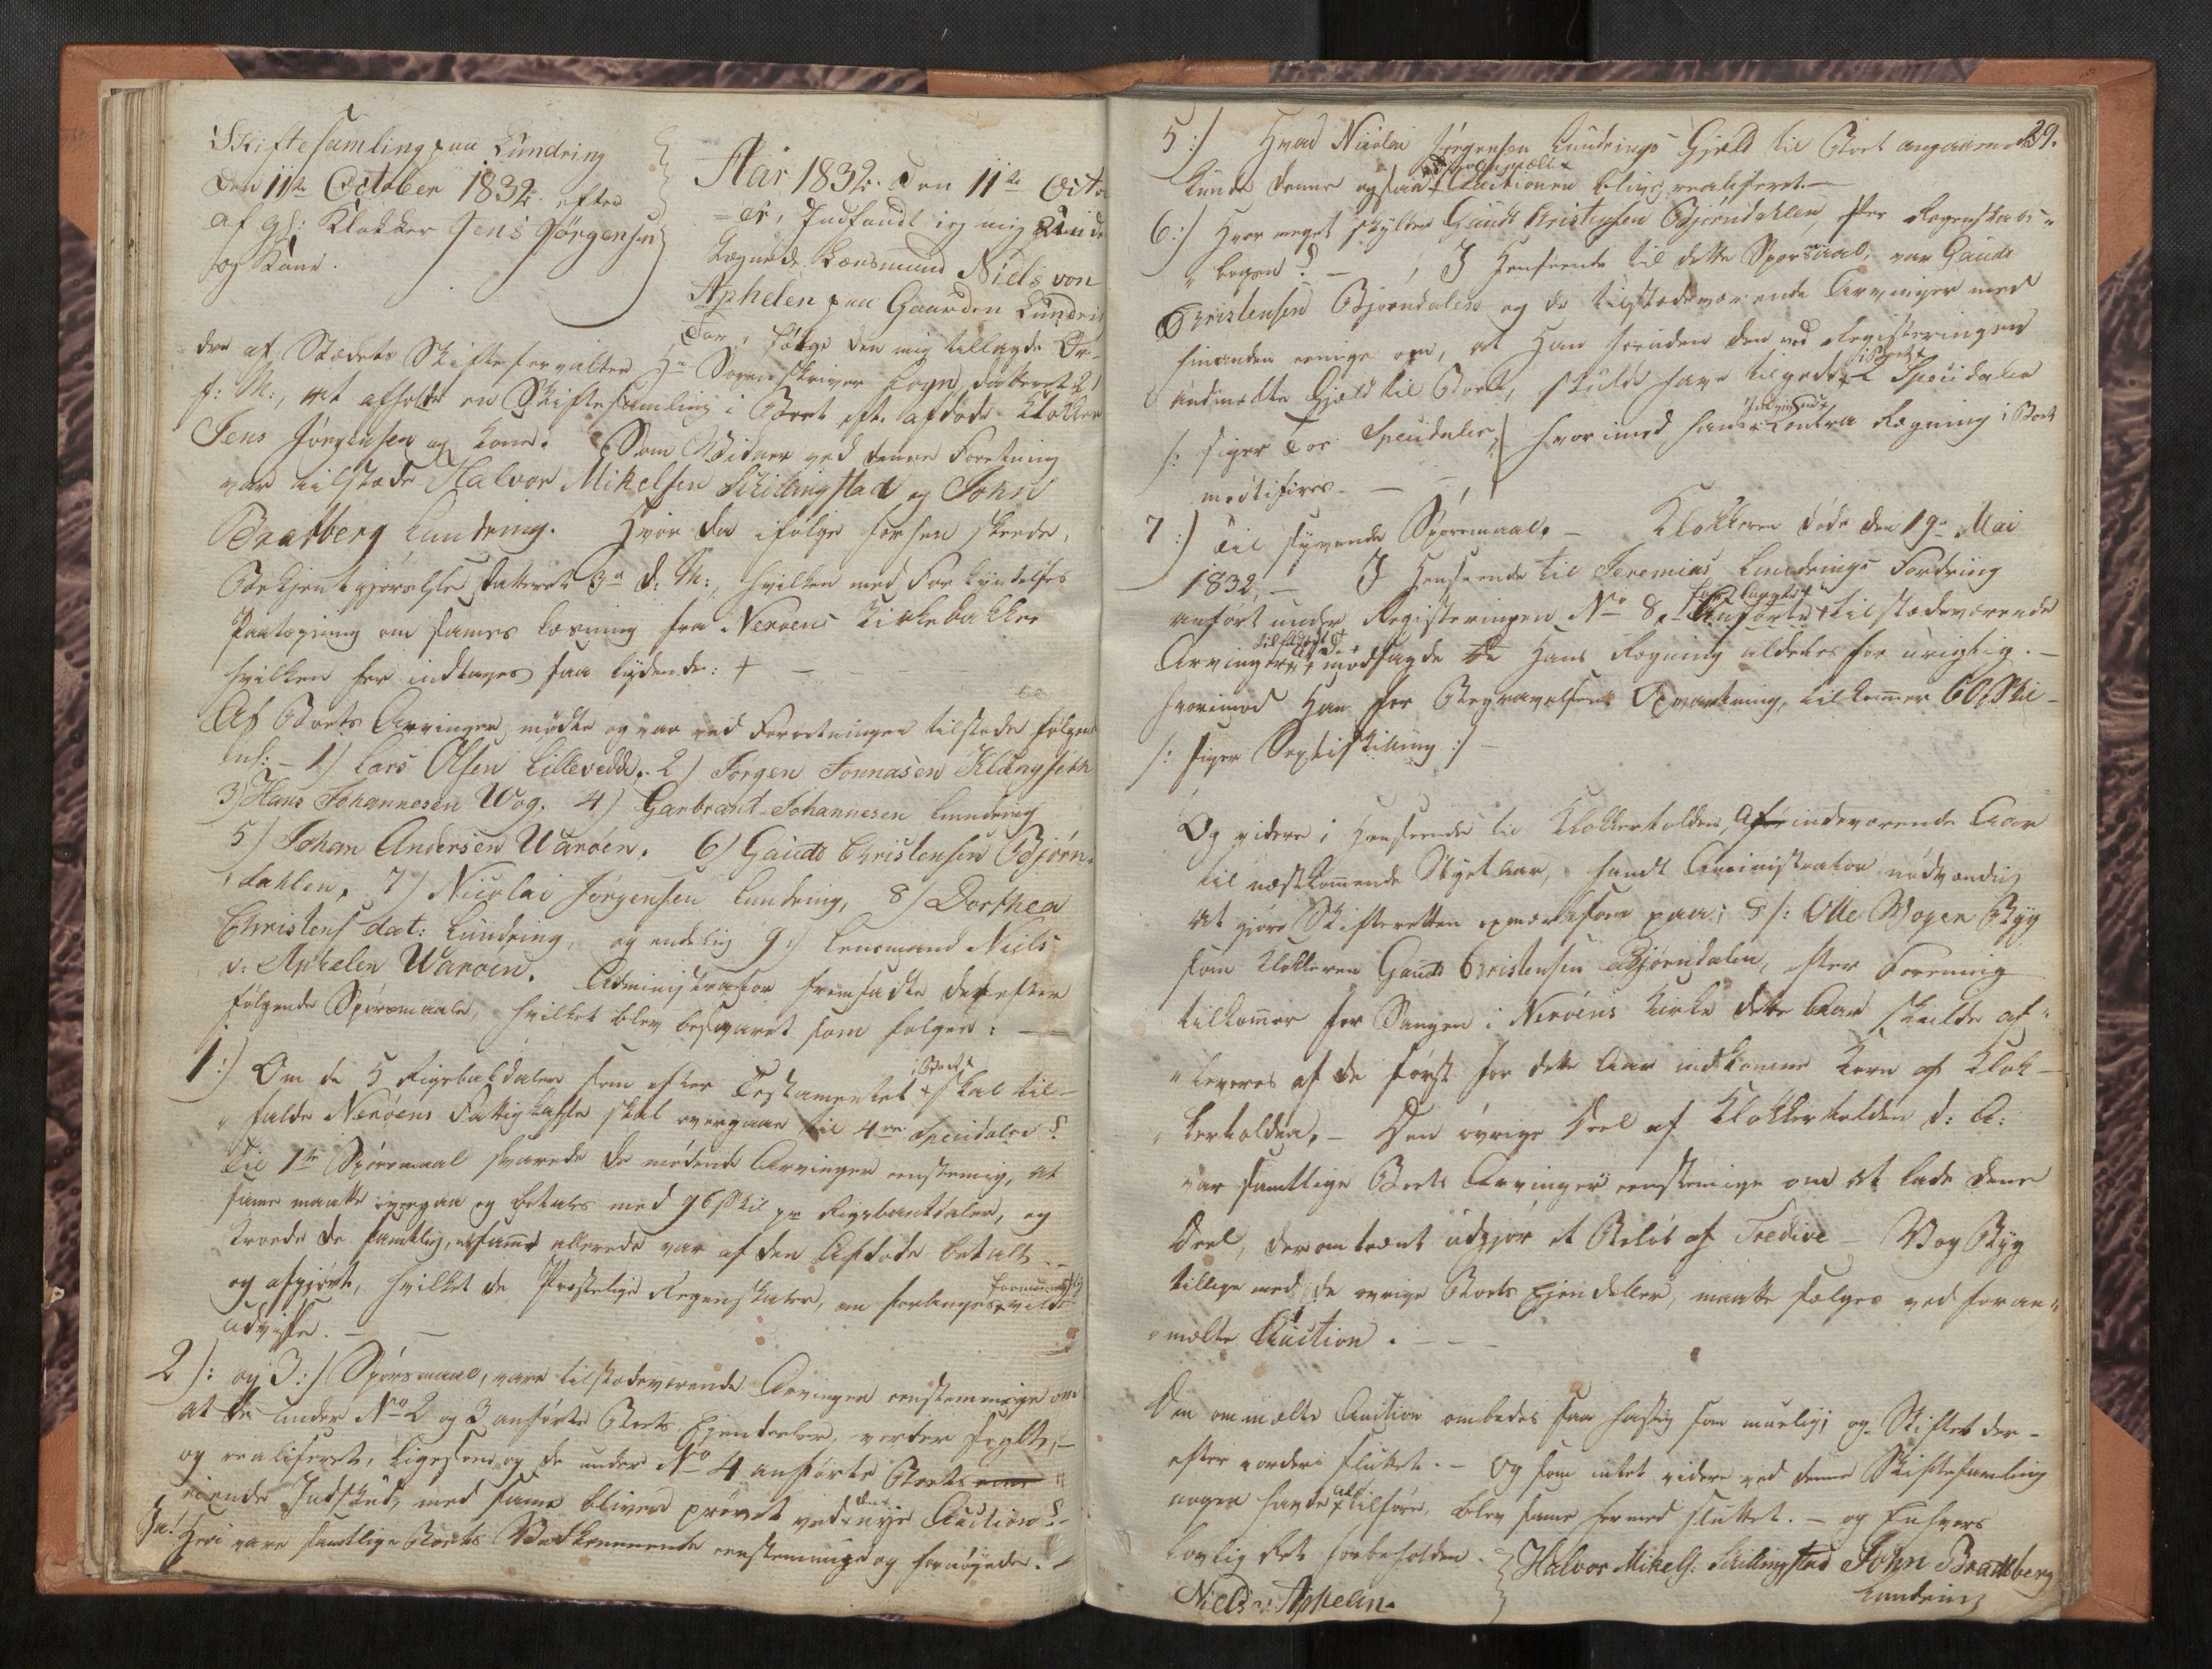 Skiftesamling paa Lundring
den 11te October 1832 efter
afgl: Klokker Jens Jørgensen
og Kone.
Aar 1832. den 11te Octo
=br, Indfandt jeg mig Unde
tegnede Lensmand Niels von
Aphelen paa Gaarden Lundri
for, følge den mig tillagde Or-
dre af Stædets Skifteforvalter Hr Sorenskriver
f: M:, at afholde en Skiftesamling i Boet eft. afdøde Klokker
Jens Jørgensen og Kone. Som Vidner ved denne Forretning
var tilstæde Halvor Mikelsen Skillingstad og John
Bratberg Lundring. Hvor da ifølge forhen skeede,
Bekjentgjørelse datteret 3die d: M:, hvilken med Forkyndelses
Paategning om sammes Læsning fra Nerøens Kirkebakke
hvilken her indtages saa lydende: + —
Af Boets Arvinger, mødte og var ved Forretningen tilstæde følgen
1) Lars Olsen Lillevedde. 2) Jørgen Jonnasen Klungseth
3) Hans Johannesen Wog. 4) Garbrant Johannesen Lundring
5) Johan Andersen Warøen. 6) Gaudts Christensen Bjørn-
dahlen, 7) Nicolai Jørgensen Lundring, 8) Dorthea
Christens dat: Lundring, og endelig 9:) Lensmand Niels
v: Aphelen Warøen. Administrator fremsatte derefter
følgende Spørsmaale, hvilket blev besvaret som følger: —
1:) Om de 5 Rigsbankdaler som efter Testamentet i Boet skal til-
falde Nerøens Fattigkasse skal overgaae til 4re Speciedaler?
Til 1te Spørsmaal svarede de mødende Arvinger eenstemig, at
samme maatte overgaa og betales med 96 skil pr Rigsbankdaler, og
troede de samtlig, at samme allerede var af den Afdøde betalt
og afgjort, hvilket de Præstelige Regenskaber, om forlanges vilde
udvise. —
2): og 3:) Spørsmaal, vare tilstædeværende Arvinger eenstemmige om
at de under No 2 og 3 anførte Boets Ejendeler, vorder solgte,
og realiseret, ligesom og de under No 4 anførte Boets
eiende Indskud, med samme bliver prøvet ved den nye Auction?
Ja! Heri vare samtlige Boets Vedkommende eenstemmige og fornøyede.
29.
5:) Hvad Nicolai Jørgensen Lundrings Gjæld til Boet angaar
kunde denne ogsaa ved Auctionen blive realiseret. —
6:) Hvor meget skylder Gaudt Kristensen Bjørndahlen, efter Regenskabs-
bogen? — I Henseende til dette Spørsmaal, var Gaudts
Christensen Bjørndalen og de tilstædeværende Arvinger med
hinanden eenige om, at Han foruden den ved Registeringen
anmeldte Gjæld til Boet, skulde have tilgode i Boet 2 Speciedaler
/: siger Toe Speciedaler, :/ hvorimod hans Contra Regning i Boet
mortificeres. —
7:) Til syvende Spørsmaal, — Klokkeren døde den 19de Mai
1832, — I Henseende til Jeremias Lundrings Fordring
anført under Registeringen No 8. tilstædeværende
Arvinger modsagde de Hans Regning aldeles for urigtig. —
hvorimod Han for Begravelsens Opvartning, tilkommer 60 Skil —
/: siger Sextiskilling :/ —
Og videre i Henseende til Klokkertolden, indeværende Aar
til næstkommende Nytaar, fandt Administrator nødvendig
at gjøre Skifteretten opmærksom paa; at /: Otte Voger Byg
som Klokkeren Gaudts Christensen Bjørndalen, efter Forening
tilkommer for Sangen i Nerøens Kirke dette Aar skulde af-
leveres af de først for dette Aar indkomne Korn af Klok-
kertolden, — Den øvrige Deel af Klokkertolden d: A:
var samtlige Boets Arvinger eenstemige om at lade denne
Deel, der omtrent udgjør et Beløb af Tredive — Vog Byg
tillige med de øvrige Boets Ejendeller, maatte sælges ved foran-
mælte Auction. —
Den ommælte Auction ombedes saa hastig som muelig, og Skiftet der-
efter vorder sluttet. — Og som intet videre ved denne Skiftesamling
nogen havde at tilføre, blev samme hermed sluttet. — og Enhvers
lovlig Ret forbeholden. Halvor Mikels: Skillingstad John Brattberg
Niels v: Aphelen. Lundring